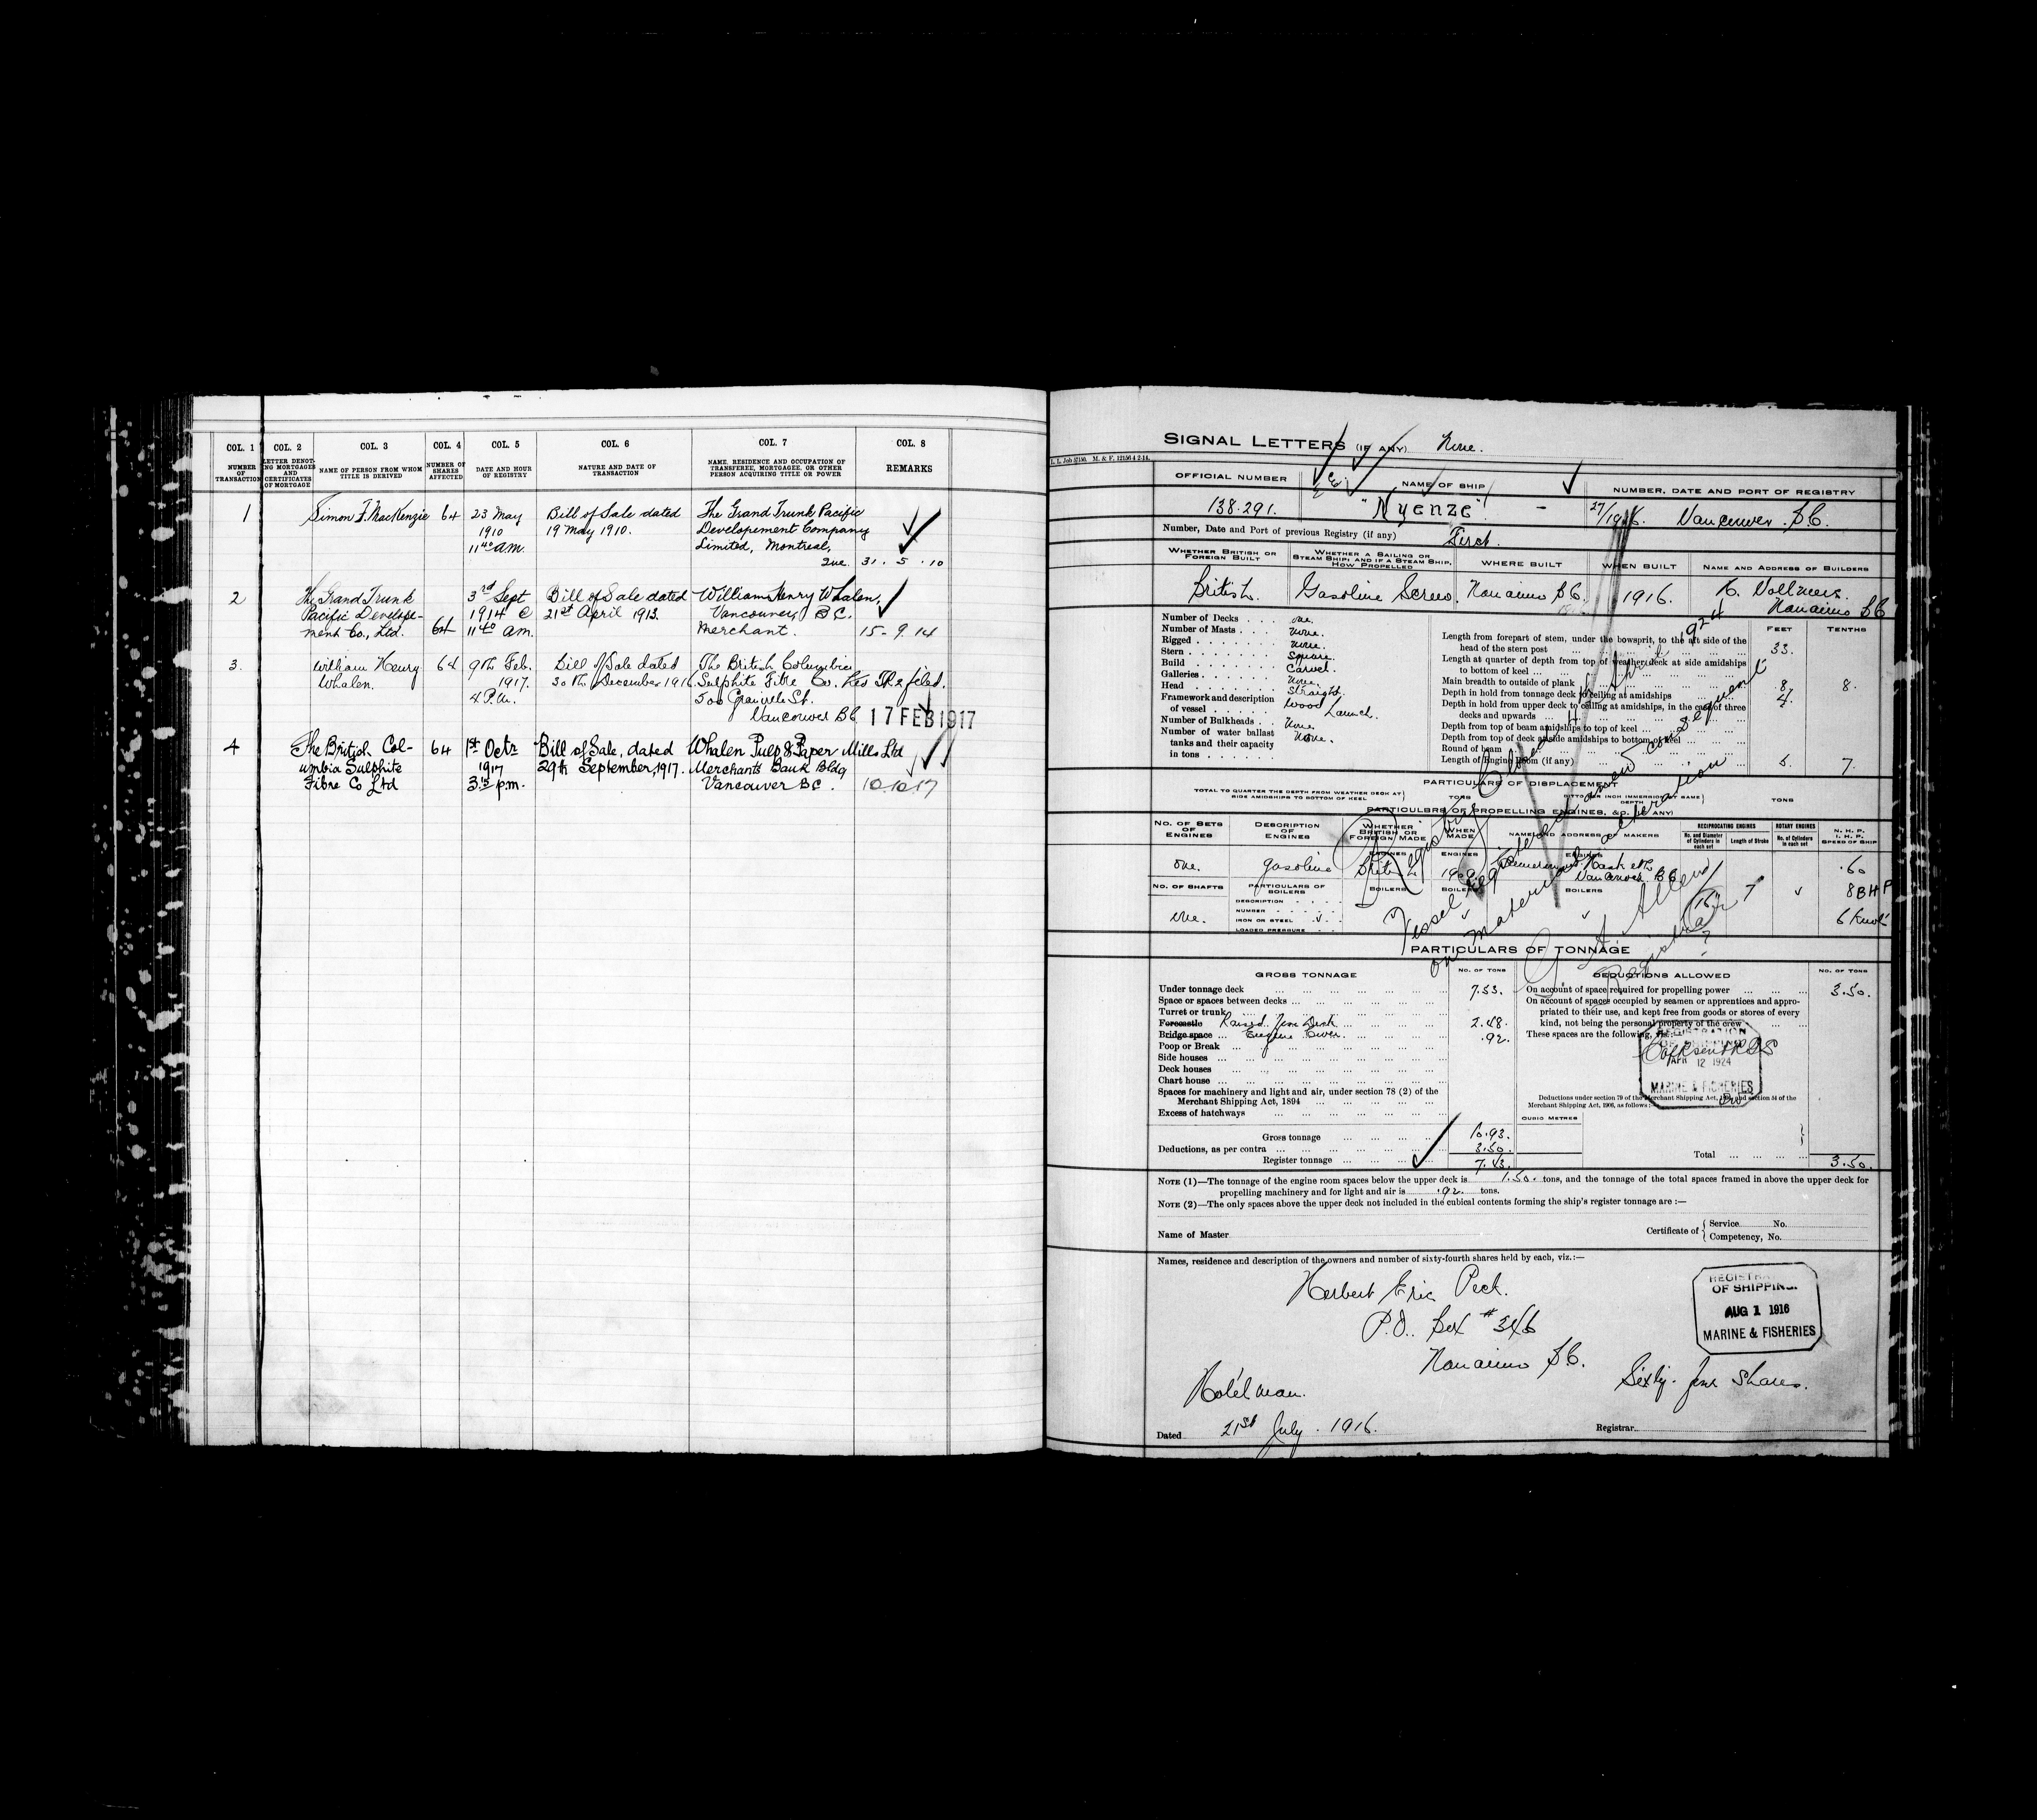 COL. 1 COL. 2 COL. 3 COL. 4 COL. 5 COL. 6 COL. 7 COL. 8
NUMBER OF TRANSACTION
LETTER DENOTING MORTGAGES AND CERTIFICATES OF MORTGAGE
NAME OF PERSON FROM WHOM TITLE IS DERIVED
NUMBER OF SHARES AFFECTED
DATE AND HOUR OF REGISTRY
NATURE AND DATE OF TRANSACTION
NAME, RESIDENCE AND OCCUPATION OF TRANSFEREE, MORTGAGEE, OR OTHER PERSON ACQUIRING TITLE OR POWER
REMARKS
1 Simon F. MacKenzie 64 23 May Bill of Sale dated The Grand Trunk Pacific
1910 19 May 1910. Developement Company
11 40 am. Limited, Montreal,
Que. 31. 5. 10
2 The Grand Trunk 3rd Sept Bill of Sale dated William Henry Whalen,
Pacific Develope- 1914 @ 21st April 1913. Vancouver, B.C.
ment Co., Ltd. 64 11 40 am. Merchant. 15- 9. 14
3. William Henry 64 9th Feb. Bill of Sale dated The British Columbia
Whalen. 1917. 30th December 1916 Sulphite Fibre Co. Res filed.
4 P.m. 500 Granville St.
Vancouver BC 17 FEB 1917
4 The British Col- 64 1st Octr Bill of Sale, dated Whalen Pulp & Paper Mills Ltd
umbia Sulphite 1917 29th September, 1917. Merchants Bank Bldg
Fibre Co Ltd 3.15 p.m. Vancouver BC. 10 10 17
SIGNAL LETTERS (IF ANY) None.
L. L. Job 12150. M. & F. 12156 4 2-14.
OFFICIAL NUMBER NAME OF SHIP NUMBER, DATE AND PORT OF REGISTRY
138.291. "Nyenze" - 27/1916. Vancouver B.C.
Number, Date and Port of previous Registry (if any) First.
WHETHER BRITISH OR FOREIGN BUILT
WHETHER A SAILING OR STEAM SHIP; AND IF A STEAM SHIP, HOW PROPELLED
WHERE BUILT
WHEN BUILT
NAME AND ADDRESS OF BUILDERS
British. Gasoline Screw. Nanaimo B.C. 1916. K. Vollmers.
Nanaimo BC
Number of Decks one.
Number of Masts none.
Rigged none.
Stern Square.
Build Carvel.
Galleries None.
Head Straight.
Framework and description of vessel Wood Launch.
Number of Bulkheads None.
Number of water ballast tanks and their capacity in tons None.
FEET TENTHS
Length from forepart of stem, under the bowsprit, to the aft side of the head of the stern post 33.
Length at quarter of depth from top of weather deck at side amidships to bottom of keel
Main breadth to outside of plank 8, 8.
Depth in hold from tonnage deck to ceiling at amidships 4.
Depth in hold from upper deck to ceiling at amidships, in the case of three decks and upwards
Depth from top of beam amidships to top of keel
Depth from top of deck at side amidships to bottom of keel
Round of beam
Length of Engine Room (if any) 5. 7.
PARTICULARS OF DISPLACEMENT
TOTAL TO QUARTER THE DEPTH FROM WEATHER DECK AT SIDE AMIDSHIPS TO BOTTOM OF KEEL TONS DITTO PER INCH IMMERSION AT SAME DEPTH TONS
PARTICULARS OF PROPELLING ENGINES, &c. (IF ANY)
NO. OF SETS OF ENGINES
DESCRIPTION OF ENGINES
WHETHER BRITISH OR FOREIGN MADE
WHEN MADE
NAME AND ADDRESS OF MAKERS
RECIPROCATING ENGINES
No. and Diameter of Cylinders in each set
Length of Stroke
ROTARY ENGINES
No. of Cylinders in each set
N. H. P. I. H. P. SPEED OF SHIP
ENGINES ENGINES ENGINES
one. gasoline British 1909 .60
Vancouver BC
NO. OF SHAFTS PARTICULARS OF BOILERS BOILERS BOILERS BOILERS
DESCRIPTION
NUMBER
IRON OR STEEL
LOADED PRESSURE
one. 7 8 BHP
6 Knots
Registry Closed 1924
Vessel Registered anew consequent
on material alteration
Registrar
PARTICULARS OF TONNAGE
GROSS TONNAGE NO. OF TONS DEDUCTIONS ALLOWED NO. OF TONS
Under tonnage deck 7.53.
Space or spaces between decks
Turret or trunk
Forecastle Raised Fore Deck 2.48.
Bridge space Engine Cover. .92.
Poop or Break
Side houses
Deck houses
Chart house
Spaces for machinery and light and air, under section 78 (2) of the
Merchant Shipping Act, 1894
Excess of hatchways
Gross tonnage 10.93.
Deductions, as per contra 3.50.
Register tonnage 7.43.
On account of space required for propelling power 3.50.
On account of spaces occupied by seamen or apprentices and appro-
priated to their use, and kept free from goods or stores of every
kind, not being the personal property of the crew
These spaces are the following, viz.:—
REGISTRATION
OF SHIPPING
APR 12 1924
MARINE & FISHERIES
Deductions under section 79 of the Merchant Shipping Act, 1894 and section 54 of the
Merchant Shipping Act, 1906, as follows:
CUBIC METRES
Total 3.50.
NOTE (1)—The tonnage of the engine room spaces below the upper deck is 1.50. tons, and the tonnage of the total spaces framed in above the upper deck for
propelling machinery and for light and air is .92. tons.
NOTE (2)—The only spaces above the upper deck not included in the cubical contents forming the ship's register tonnage are:—
Name of Master Certificate of { Service No.
Competency, No.
Names, residence and description of the owners and number of sixty-fourth shares held by each, viz.:—
Herbert Eric Peck.
P.O. Box # 346
Nanaimo B.C.
Hotelman. Sixty-four Shares.
REGISTRATION
OF SHIPPING
AUG 1 1916
MARINE & FISHERIES
Dated 21st July. 1916. Registrar